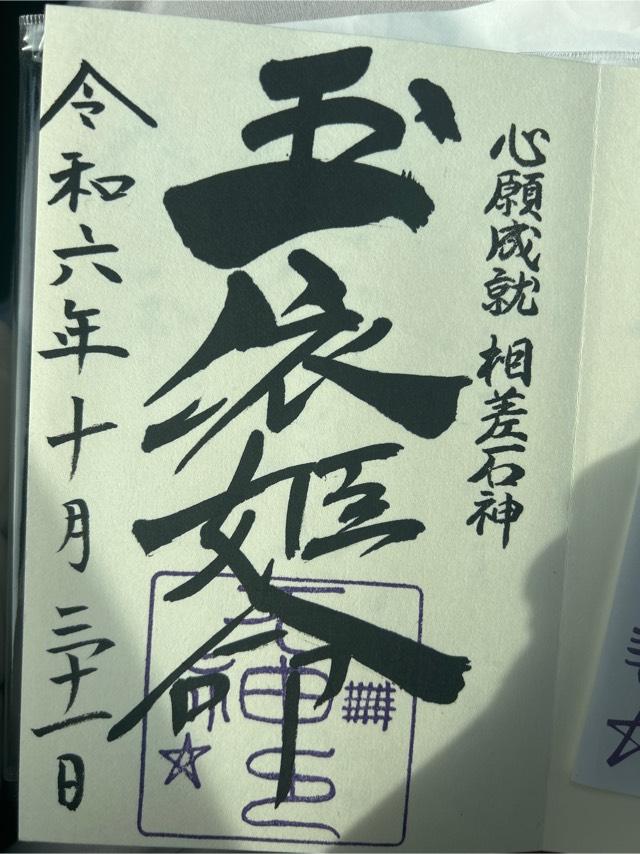 心願成就 相差石神
玉依姫命
令和六年十月三十一日